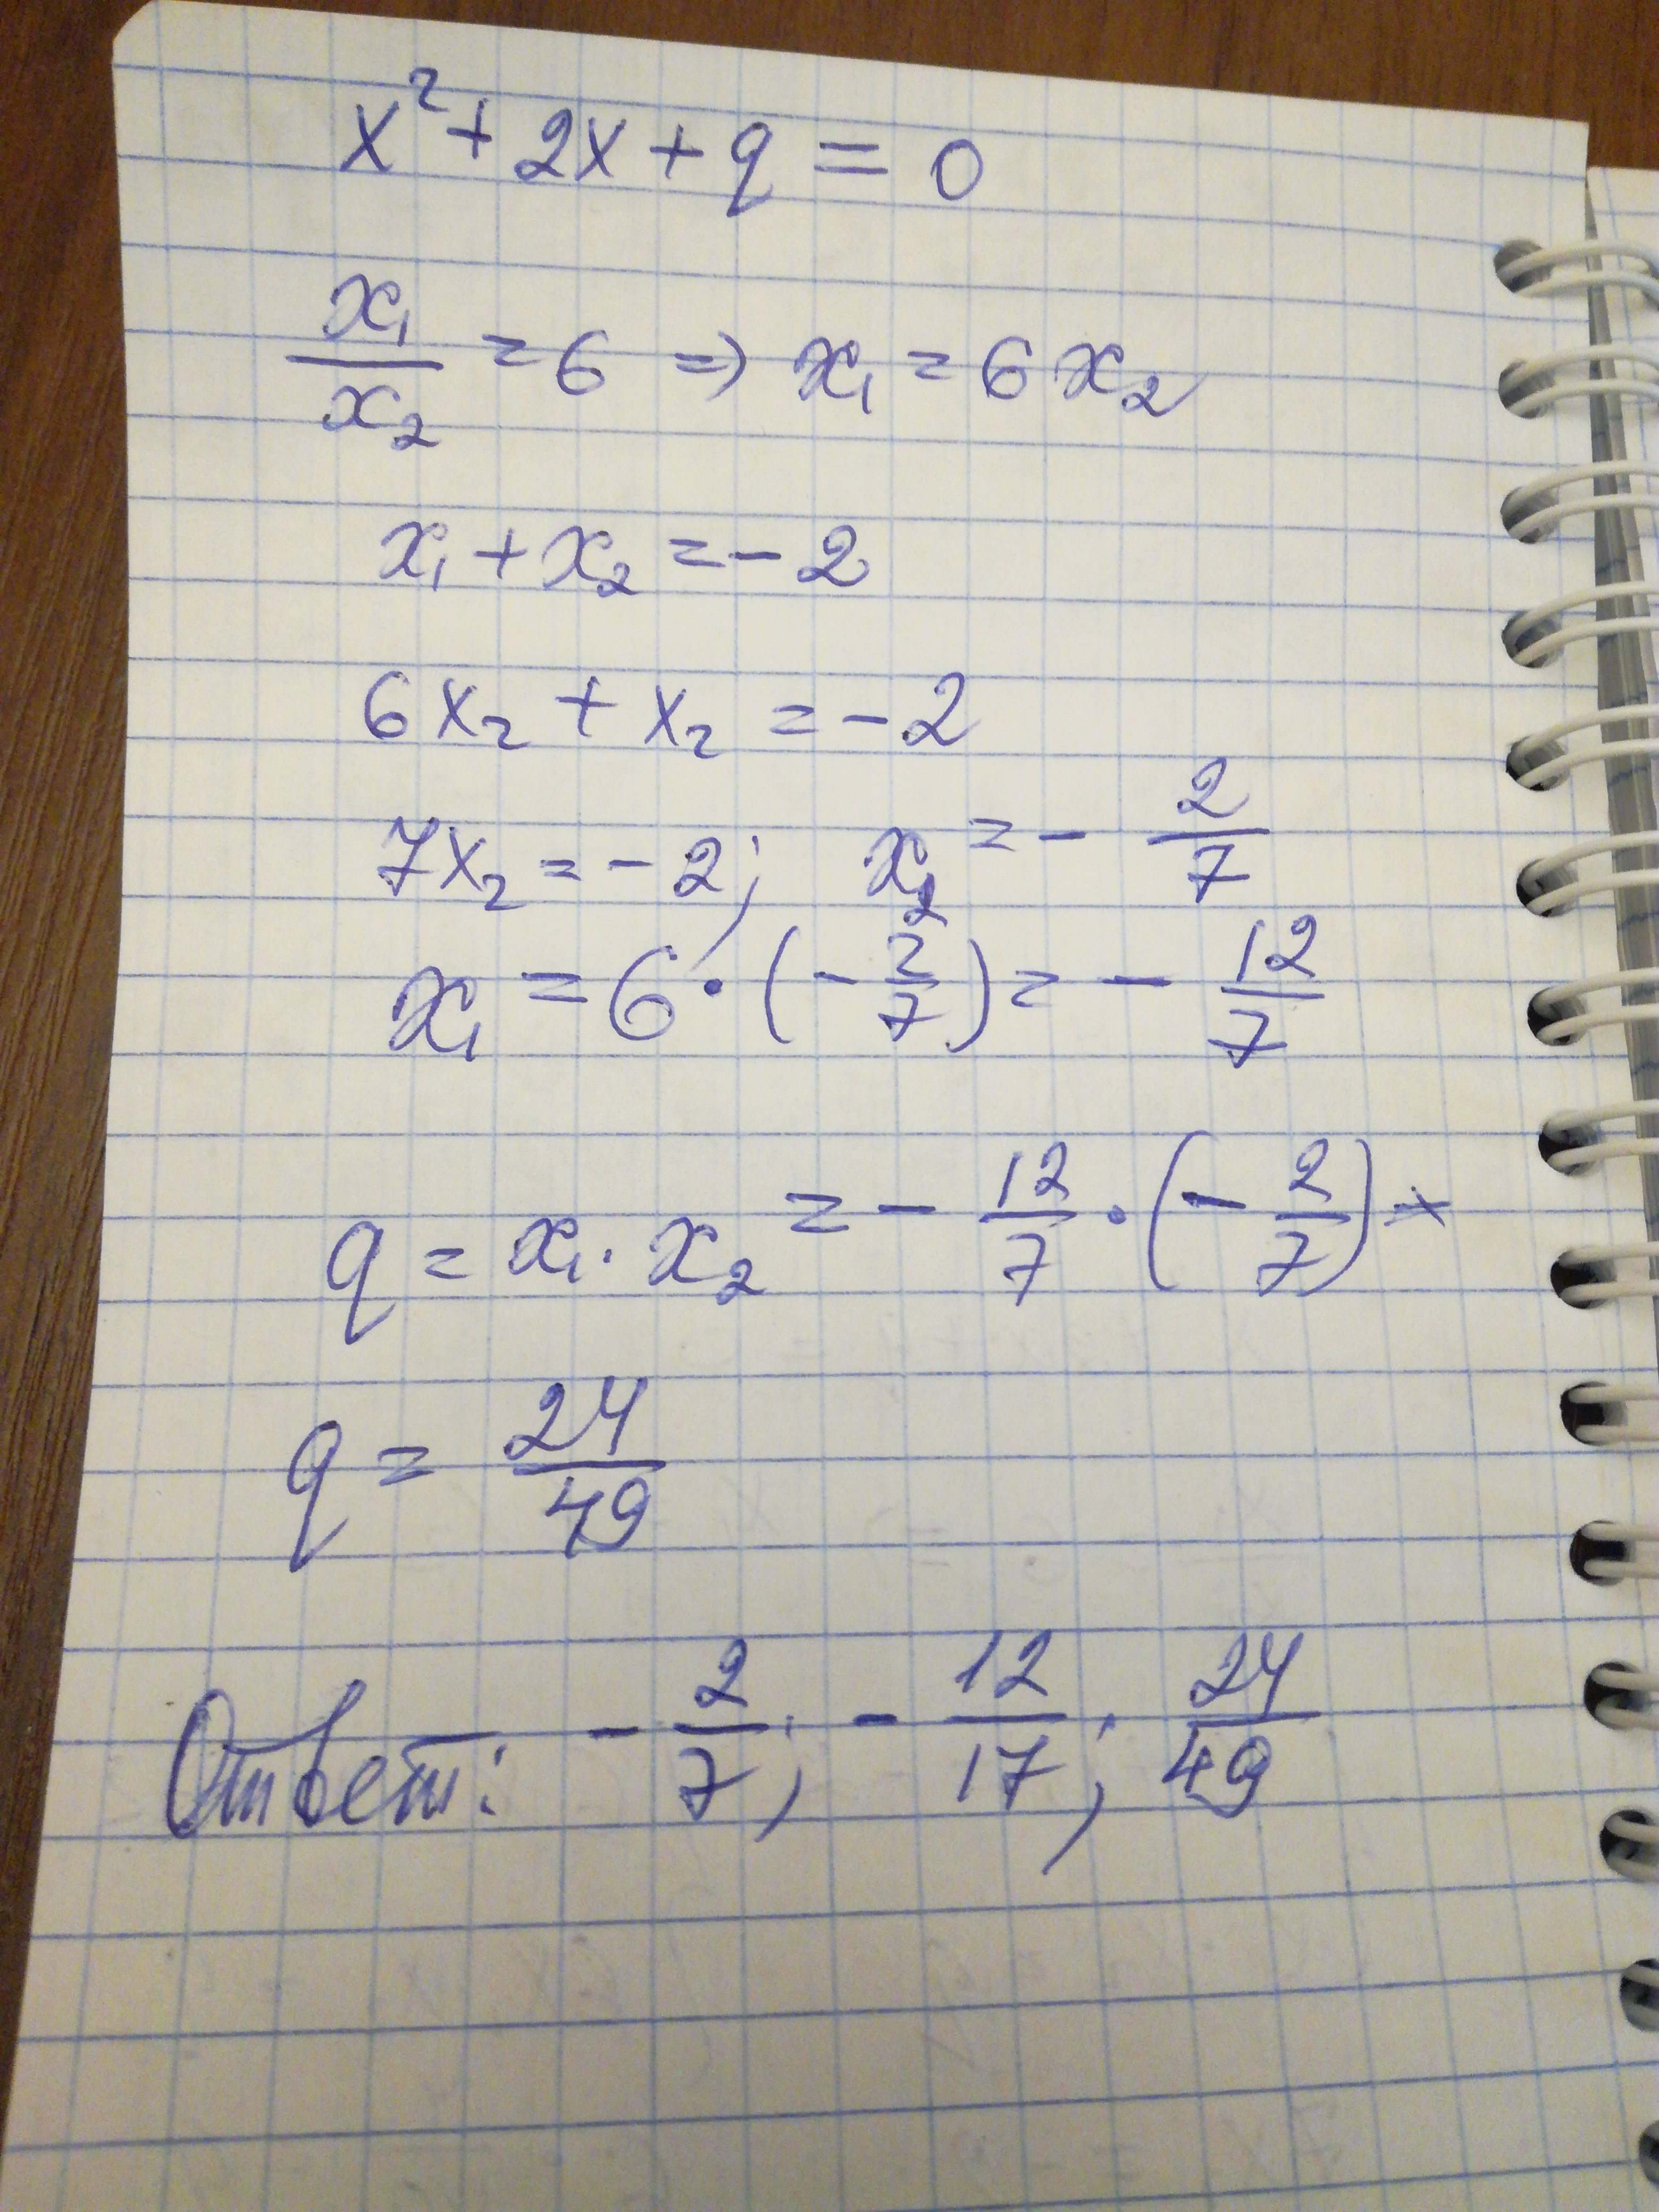 x² + 2x + q = 0
x₁/x₂ = 6 => x₁ = 6x₂
x₁ + x₂ = -2
6x₂ + x₂ = -2
7x₂ = -2; x₂ = - 2/7
x₁ = 6 · (- 2/7) = - 12/7
q = x₁ · x₂ = - 12/7 · (- 2/7)
q = 24/49
Ответ: - 2/7; - 12/17; 24/49